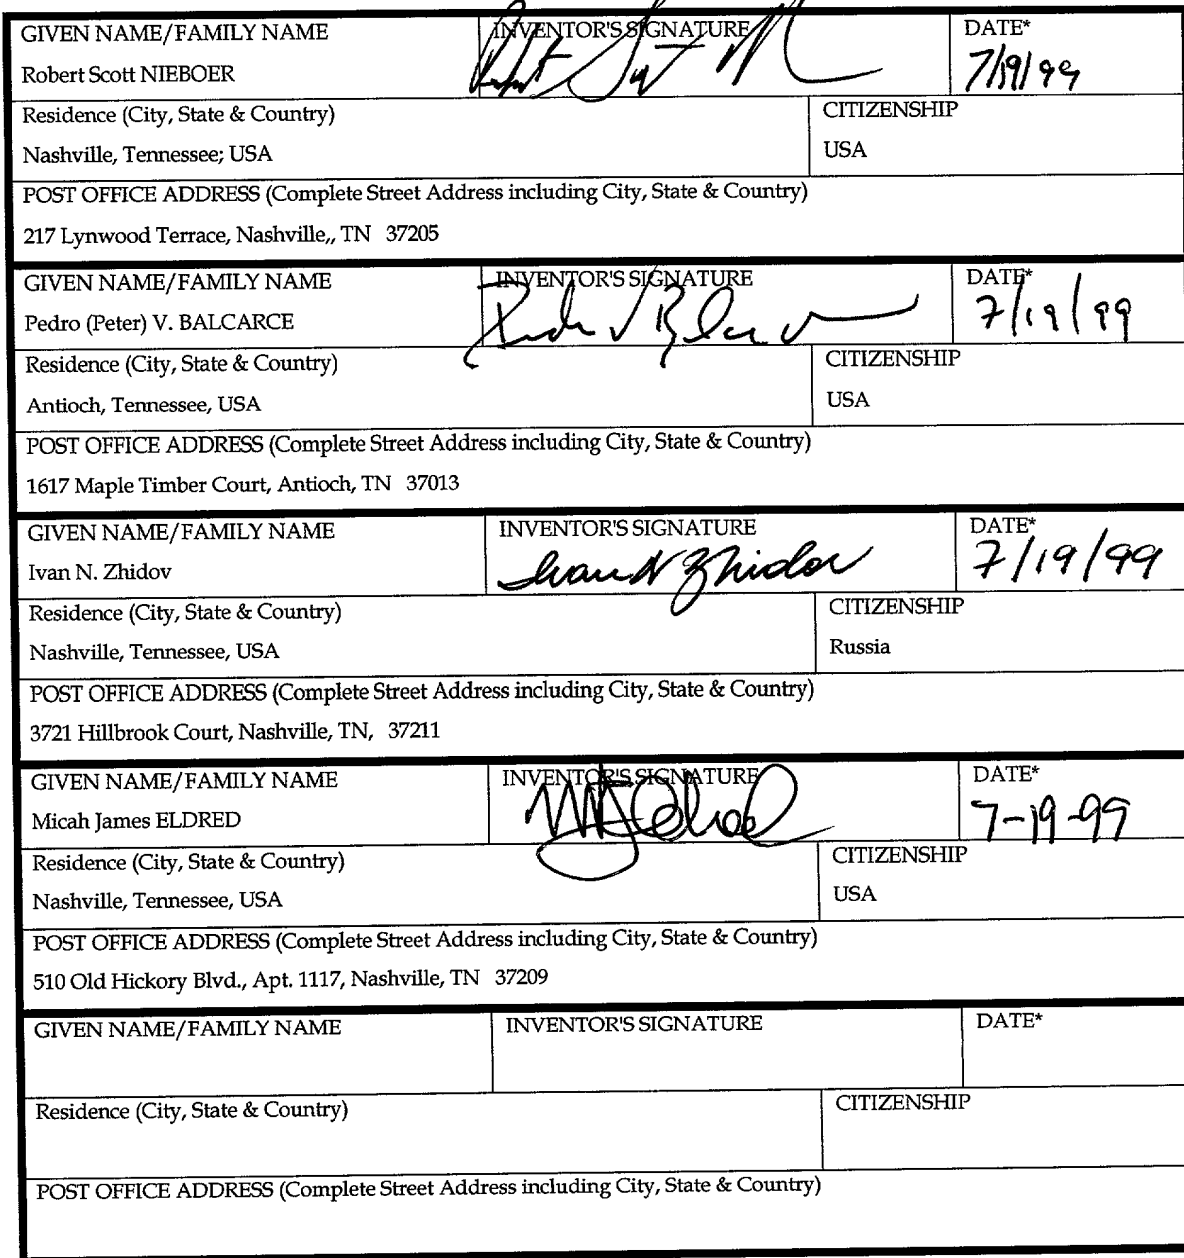 GIVEN NAME/FAMILY NAME INVENTOR'S SIGNATURE DATE*
Robert Scott NIEBOER 7/19/99
Residence (City, State & Country) CITIZENSHIP
Nashville, Tennessee; USA USA
POST OFFICE ADDRESS (Complete Street Address including City, State & Country)
217 Lynwood Terrace, Nashville,, TN 37205
GIVEN NAME/FAMILY NAME INVENTOR'S SIGNATURE DATE*
Pedro (Peter) V. BALCARCE 7/19/99
Residence (City, State & Country) CITIZENSHIP
Antioch, Tennessee, USA USA
POST OFFICE ADDRESS (Complete Street Address including City, State & Country)
1617 Maple Timber Court, Antioch, TN 37013
GIVEN NAME/FAMILY NAME INVENTOR'S SIGNATURE DATE*
Ivan N. Zhidov Ivan N Zhidov 7/19/99
Residence (City, State & Country) CITIZENSHIP
Nashville, Tennessee, USA Russia
POST OFFICE ADDRESS (Complete Street Address including City, State & Country)
3721 Hillbrook Court, Nashville, TN, 37211
GIVEN NAME/FAMILY NAME INVENTOR'S SIGNATURE DATE*
Micah James ELDRED 7-19-99
Residence (City, State & Country) CITIZENSHIP
Nashville, Tennessee, USA USA
POST OFFICE ADDRESS (Complete Street Address including City, State & Country)
510 Old Hickory Blvd., Apt. 1117, Nashville, TN 37209
GIVEN NAME/FAMILY NAME INVENTOR'S SIGNATURE DATE*
Residence (City, State & Country) CITIZENSHIP
POST OFFICE ADDRESS (Complete Street Address including City, State & Country)